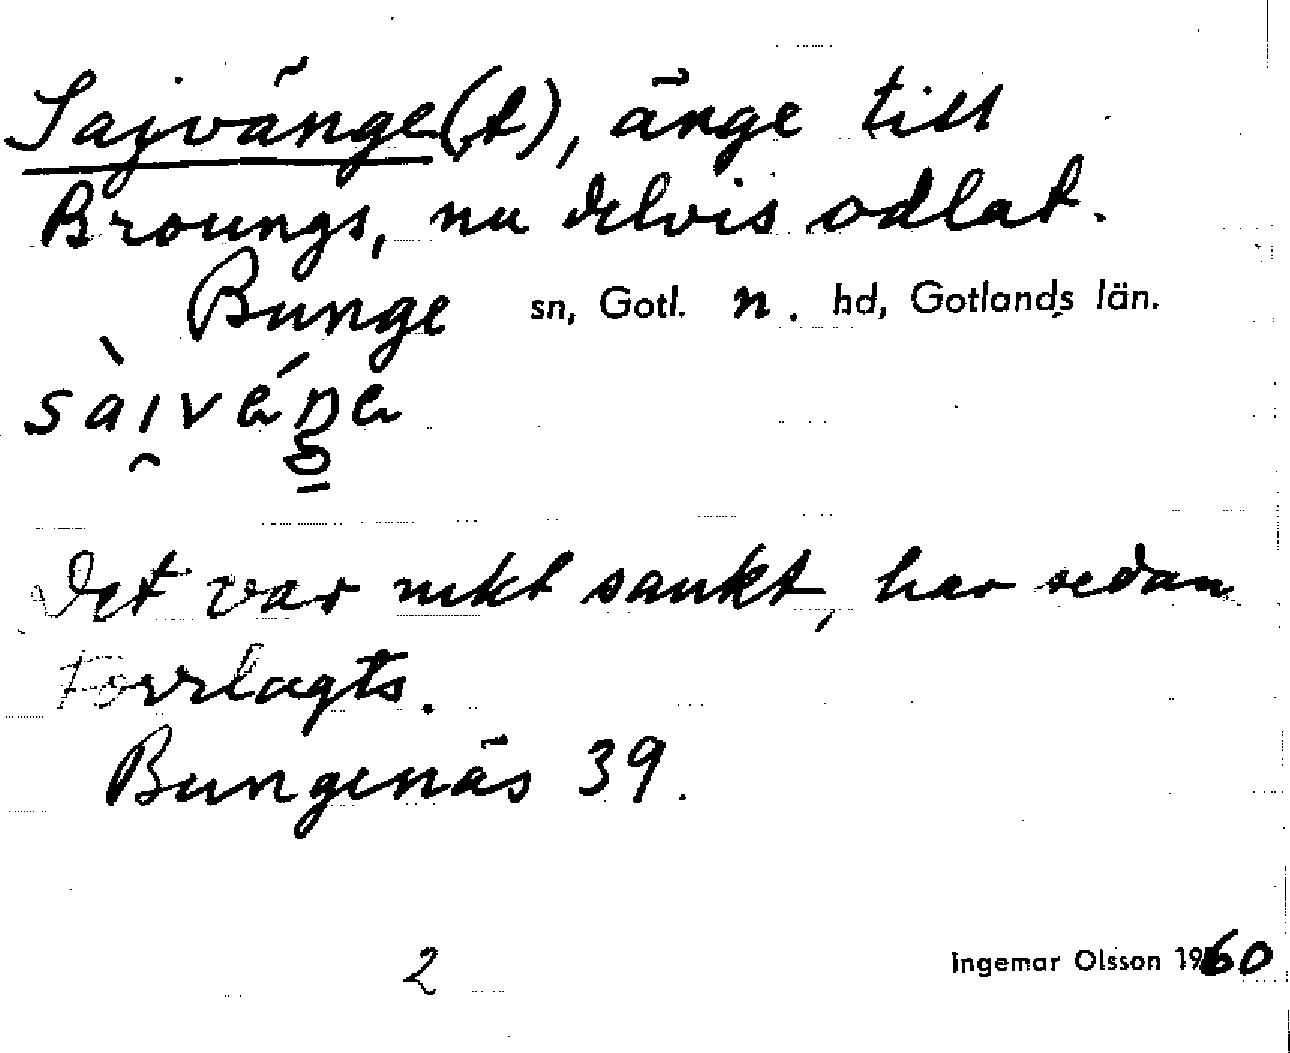 Sajvänge(t), änge till
Broungs, nu delvis odlat.
Bunge sn, Gotl. n. hd, Gotlands län.
Det var rikt sankt, har sedan
torrlagts.
Bungenäs 39.
2
Ingemar Olsson 1960